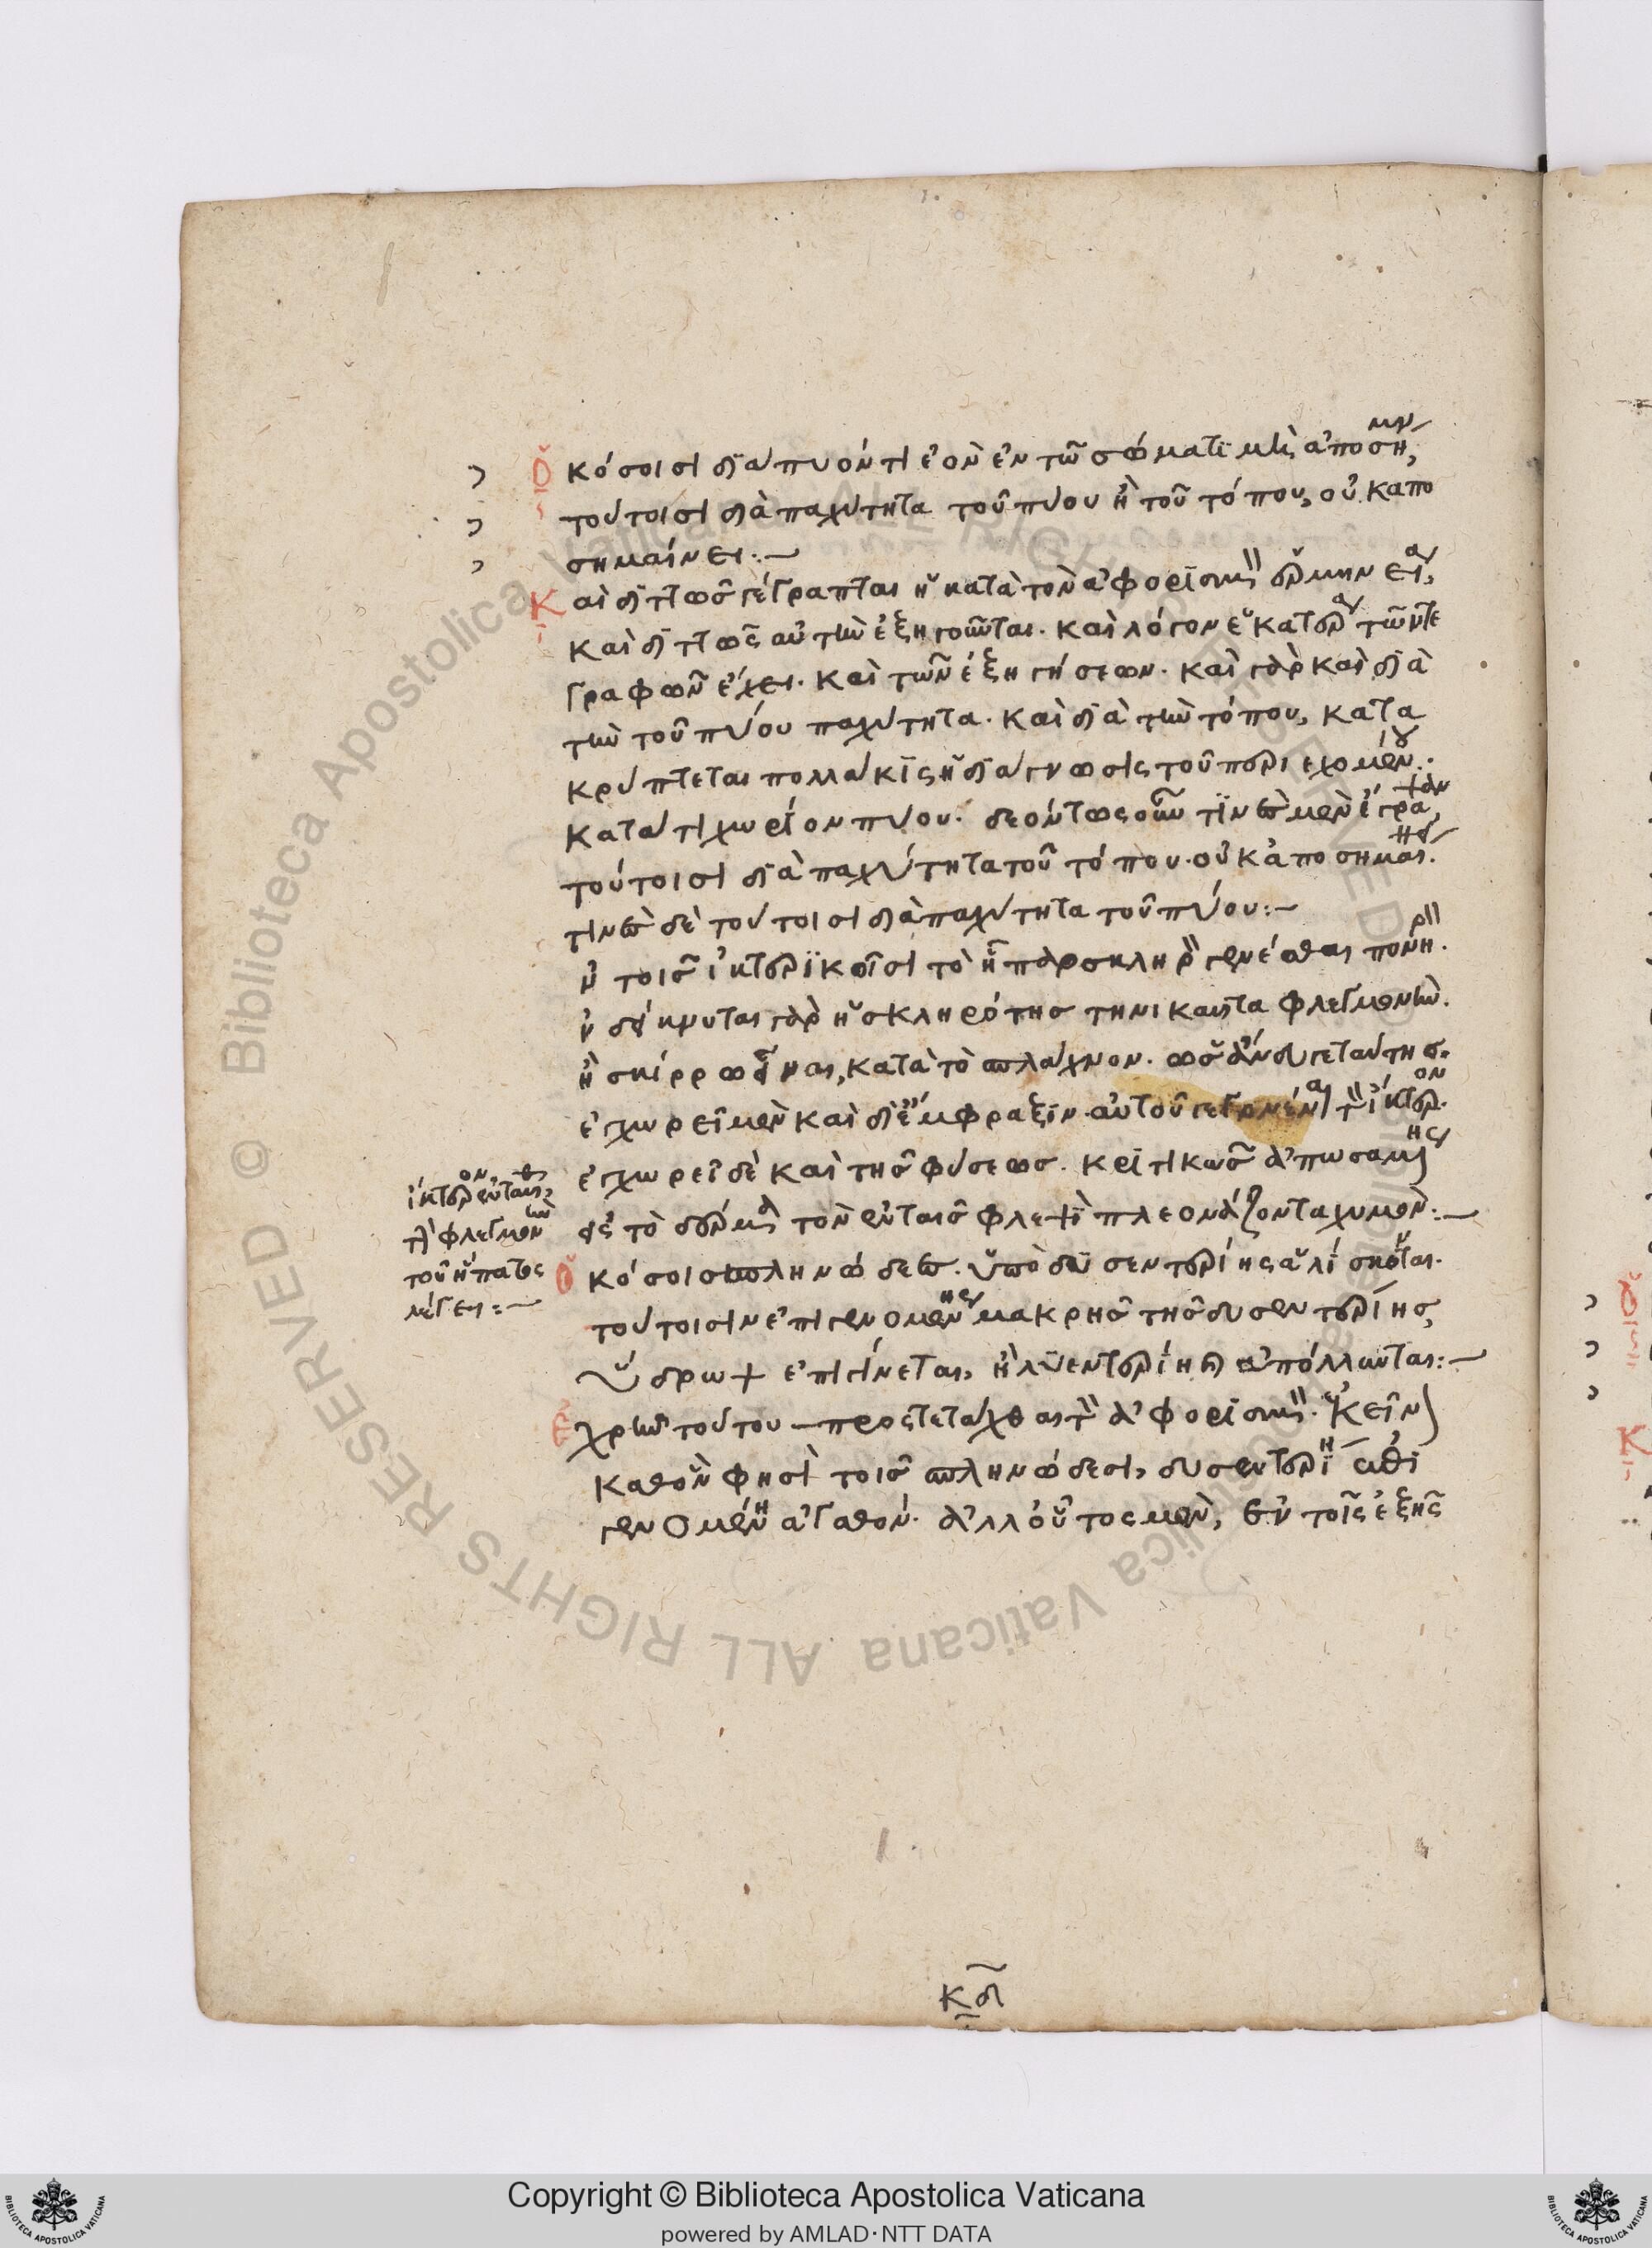 Ὁκόσοισι διάπυόν τι ἐὸν ἐν τῶ σώματι μὴ ἀποσημαίνει,
τούτοισι διὰ παχύτητα τοῦ πύου ἢ τοῦ τόπου, οὐκ ἀπο
σημαίνει:—
Καὶ διττῶς γέγραπται ἡ κατὰ τὸν ἀφορισμὸν ἑρμηνεία,
καὶ διττῶς αὐτὴν ἐξηγοῦνται. καὶ λόγον ἑκατέρα τῶν τε
γραφῶν ἔχει. καὶ τῶν ἐξηγήσεων. καὶ γὰρ καὶ διὰ
τὴν τοῦ πύου παχύτητα. καὶ διὰ τὴν τόπου, κατα
κρύπτεται πολλάκις ἡ διάγνωσις τοῦ περιεχομένου
κατά τι χωρίον πύου. δεόντως οὖν τινὲς μὲν ἔγραψαν,
τούτοισι διὰ παχύτητα τοῦ τόπου οὐκ ἀποσημαίνει.
τινὲς δὲ τούτοισι διὰ παχύτητα τοῦ πύου:—
ἐν τοῖς ἰκτερικοῖσι τὸ ἧπαρ σκληρὸν γενέσθαι πονηρόν.
ἐνδείκνυται γὰρ ἡ σκληρότης τηνικαῦτα φλεγμονὴν.
ἢ σκίρρον εἶναι, κατὰ τὸ σπλάχνον. ὡς ἄνευ γε ταύτης
ἐγχωρεῖ μὲν καὶ δι' ἔμφραξιν αὐτοῦ γεγονέναι τὸν ἴκτερον.
ἐγχωρεῖ δὲ καὶ τῆς φύσεως. κριτικῶς ἀπωσαμένης
εἰς τὸ δέρμα τὸν ἐν ταῖς φλεψὶ πλεονάζοντα χυμόν:—
Ὁκόσοι σπληνώδεες. ὑπὸ δυσεντερίης ἁλίσκονται.
τούτοισιν ἐπιγενομένης μακρῆς τῆς δυσεντερίης,
ὕδρωψ ἐπιγίνεται, ἢ λιεντερίη καὶ ἀπόλλυνται:—
Ἐχρῆν τούτου προτετάχθαι τὸν ἀφορισμὸν. ἐκεῖνον
καθ' ὃν φησὶ τοῖς σπληνώδεσι, δυσεντερίη ἐπι
γενομένη ἀγαθόν. ἀλλ' οὗτος μὲν, ἐν τοῖς ἑξῆς
ἴκτερον ἐνταῦθα,
τὴν φλεγμονὴν
τοῦ ἥπατος
λέγει:—
κδ
Copyright © Biblioteca Apostolica Vaticana
powered by AMLAD·NTT DATA
© Biblioteca Apostolica Vaticana ALL RIGHTS RESERVED